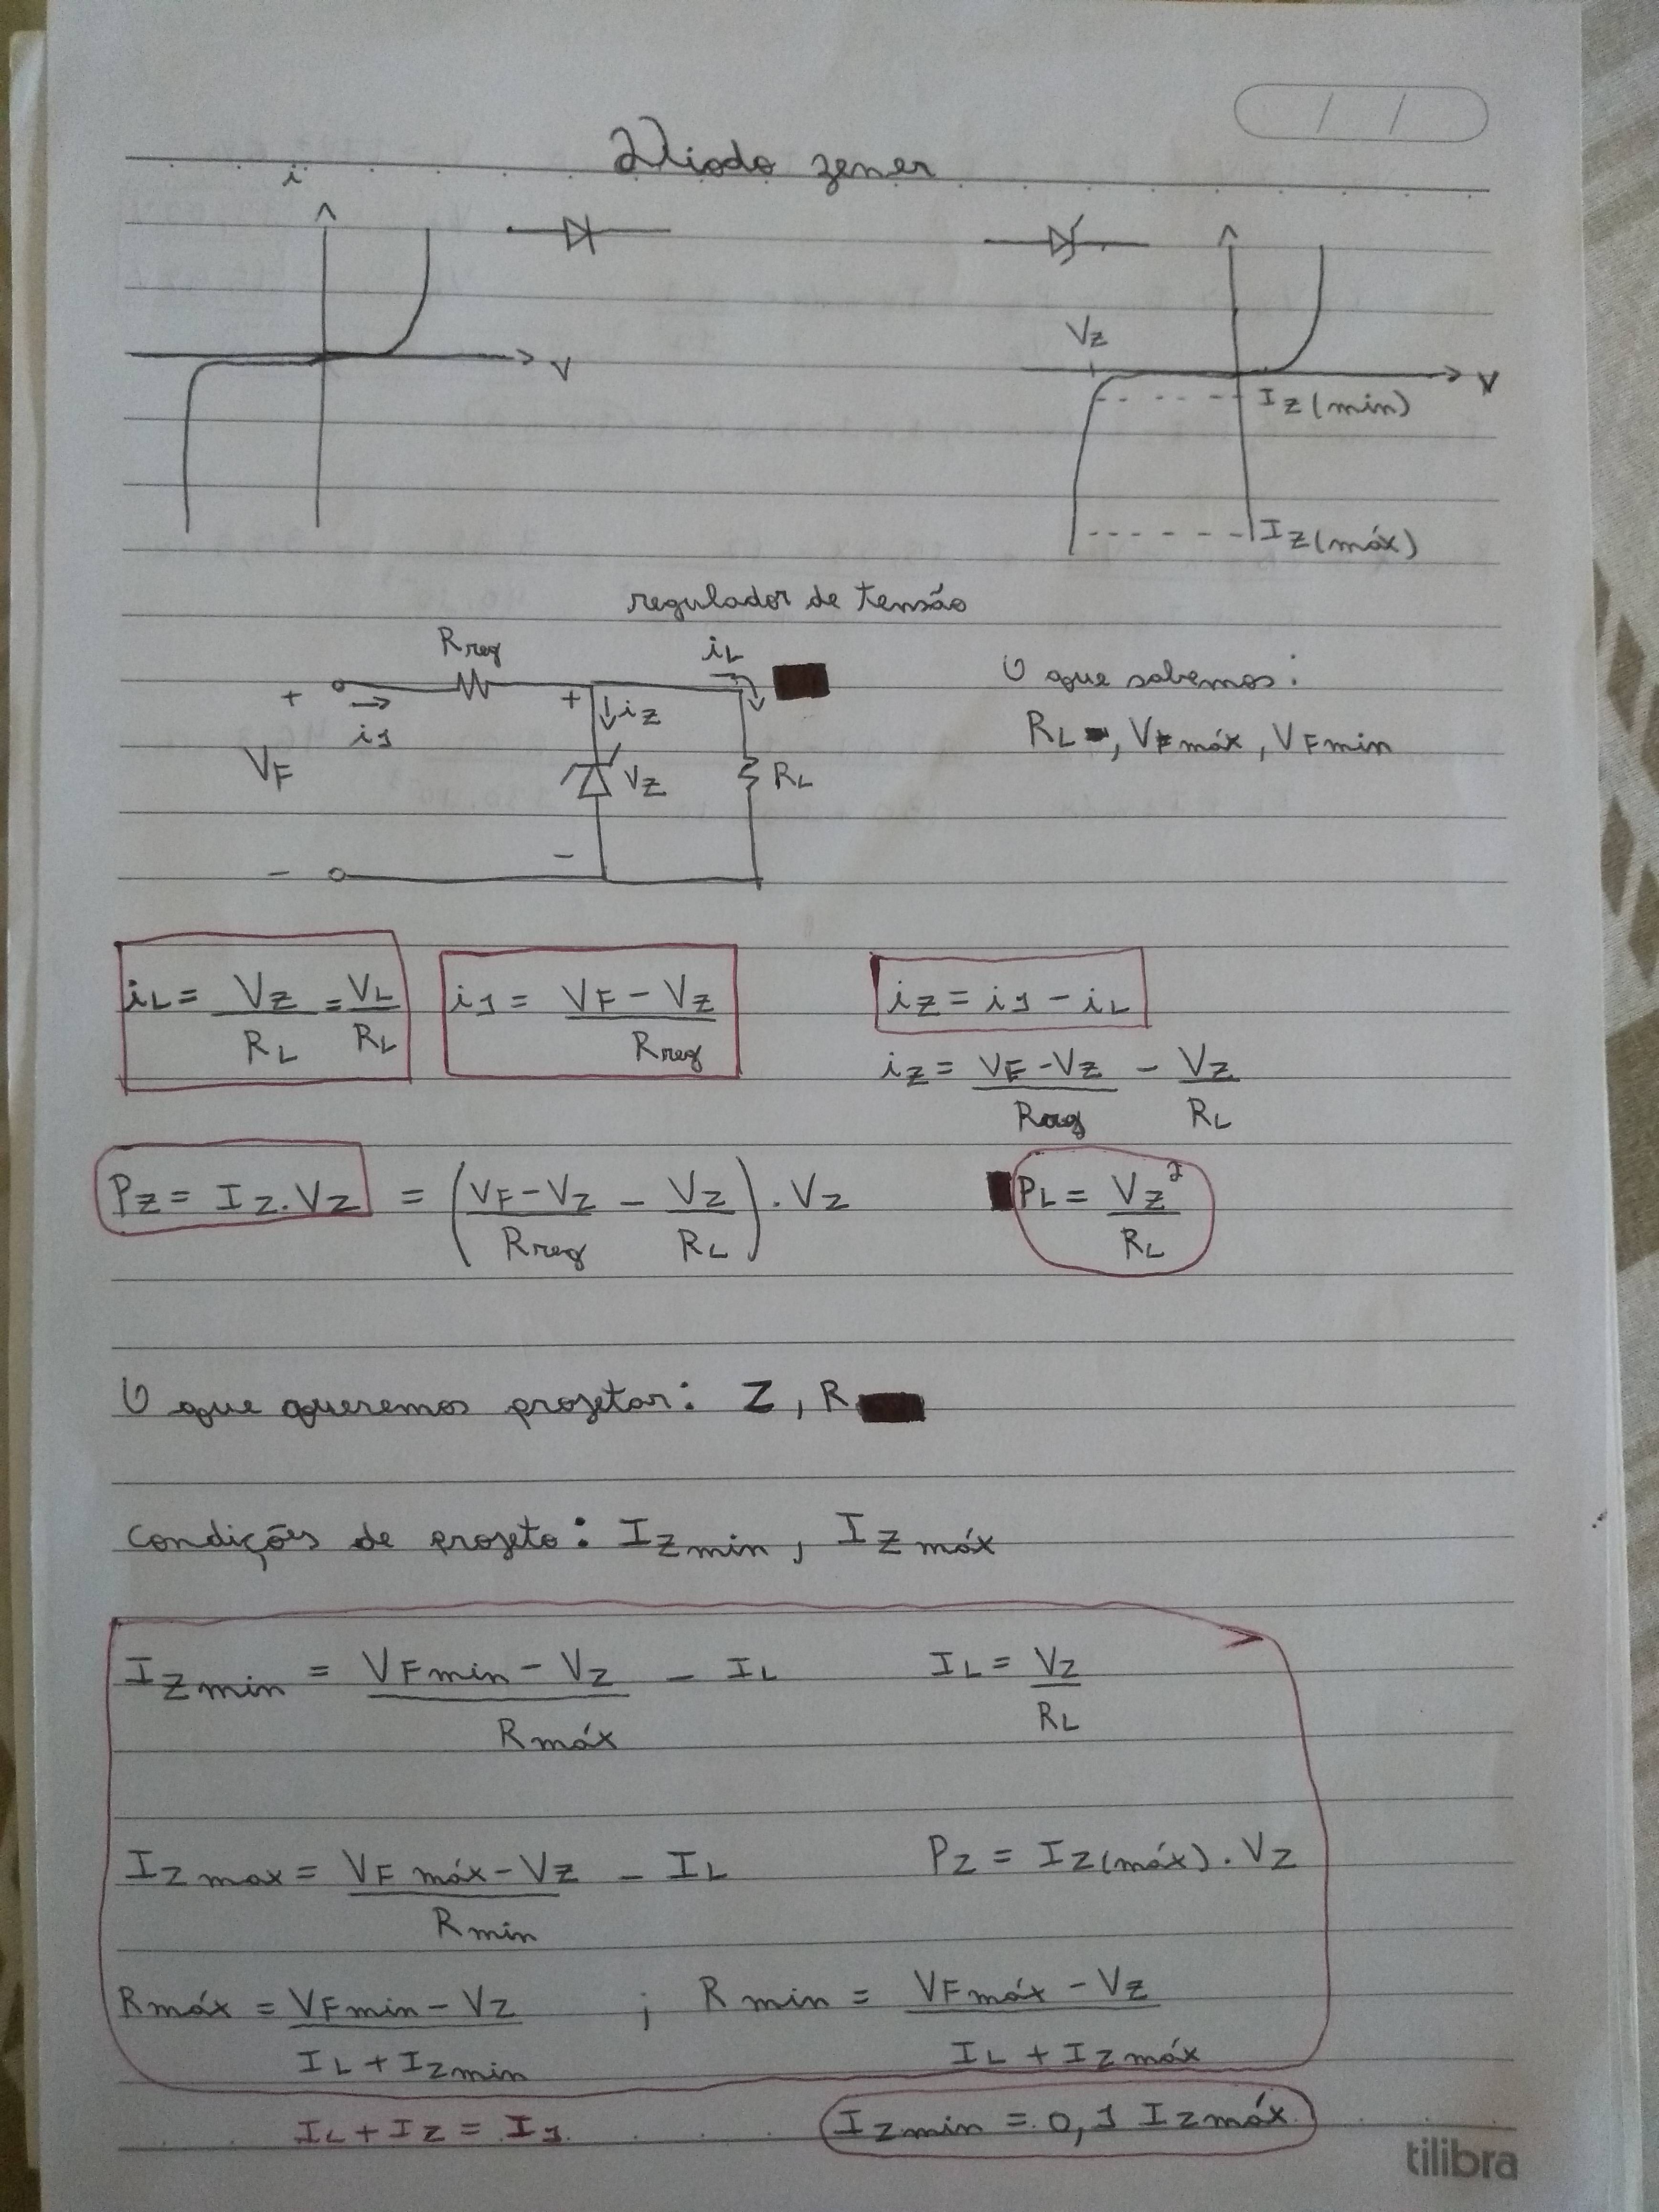 Diodo zener
i
V
Vz
V
Iz(min)
Iz(máx)
regulador de tensão
Rreg
iL
+
i1
+
iz
VF
Vz
RL
-
-
O que sabemos:
RL, VFmáx, VFmin
iL = Vz/RL = VL/RL
i1 = (VF - Vz)/Rreg
iz = i1 - iL
iz = (VF - Vz)/Rreg - Vz/RL
Pz = Iz.Vz = ((VF - Vz)/Rreg - Vz/RL) . Vz
PL = Vz²/RL
O que queremos projetar: Z, R
Condições de projeto: Izmin, Izmáx
Izmin = (VFmin - Vz)/Rmáx - IL
IL = Vz/RL
Izmax = (VFmáx - Vz)/Rmin - IL
Pz = Iz(máx) . Vz
Rmáx = (VFmin - Vz)/(IL + Izmin) ; Rmin = (VFmáx - Vz)/(IL + Izmáx)
IL + Iz = I1
Izmin = 0,1 Izmáx
tilibra